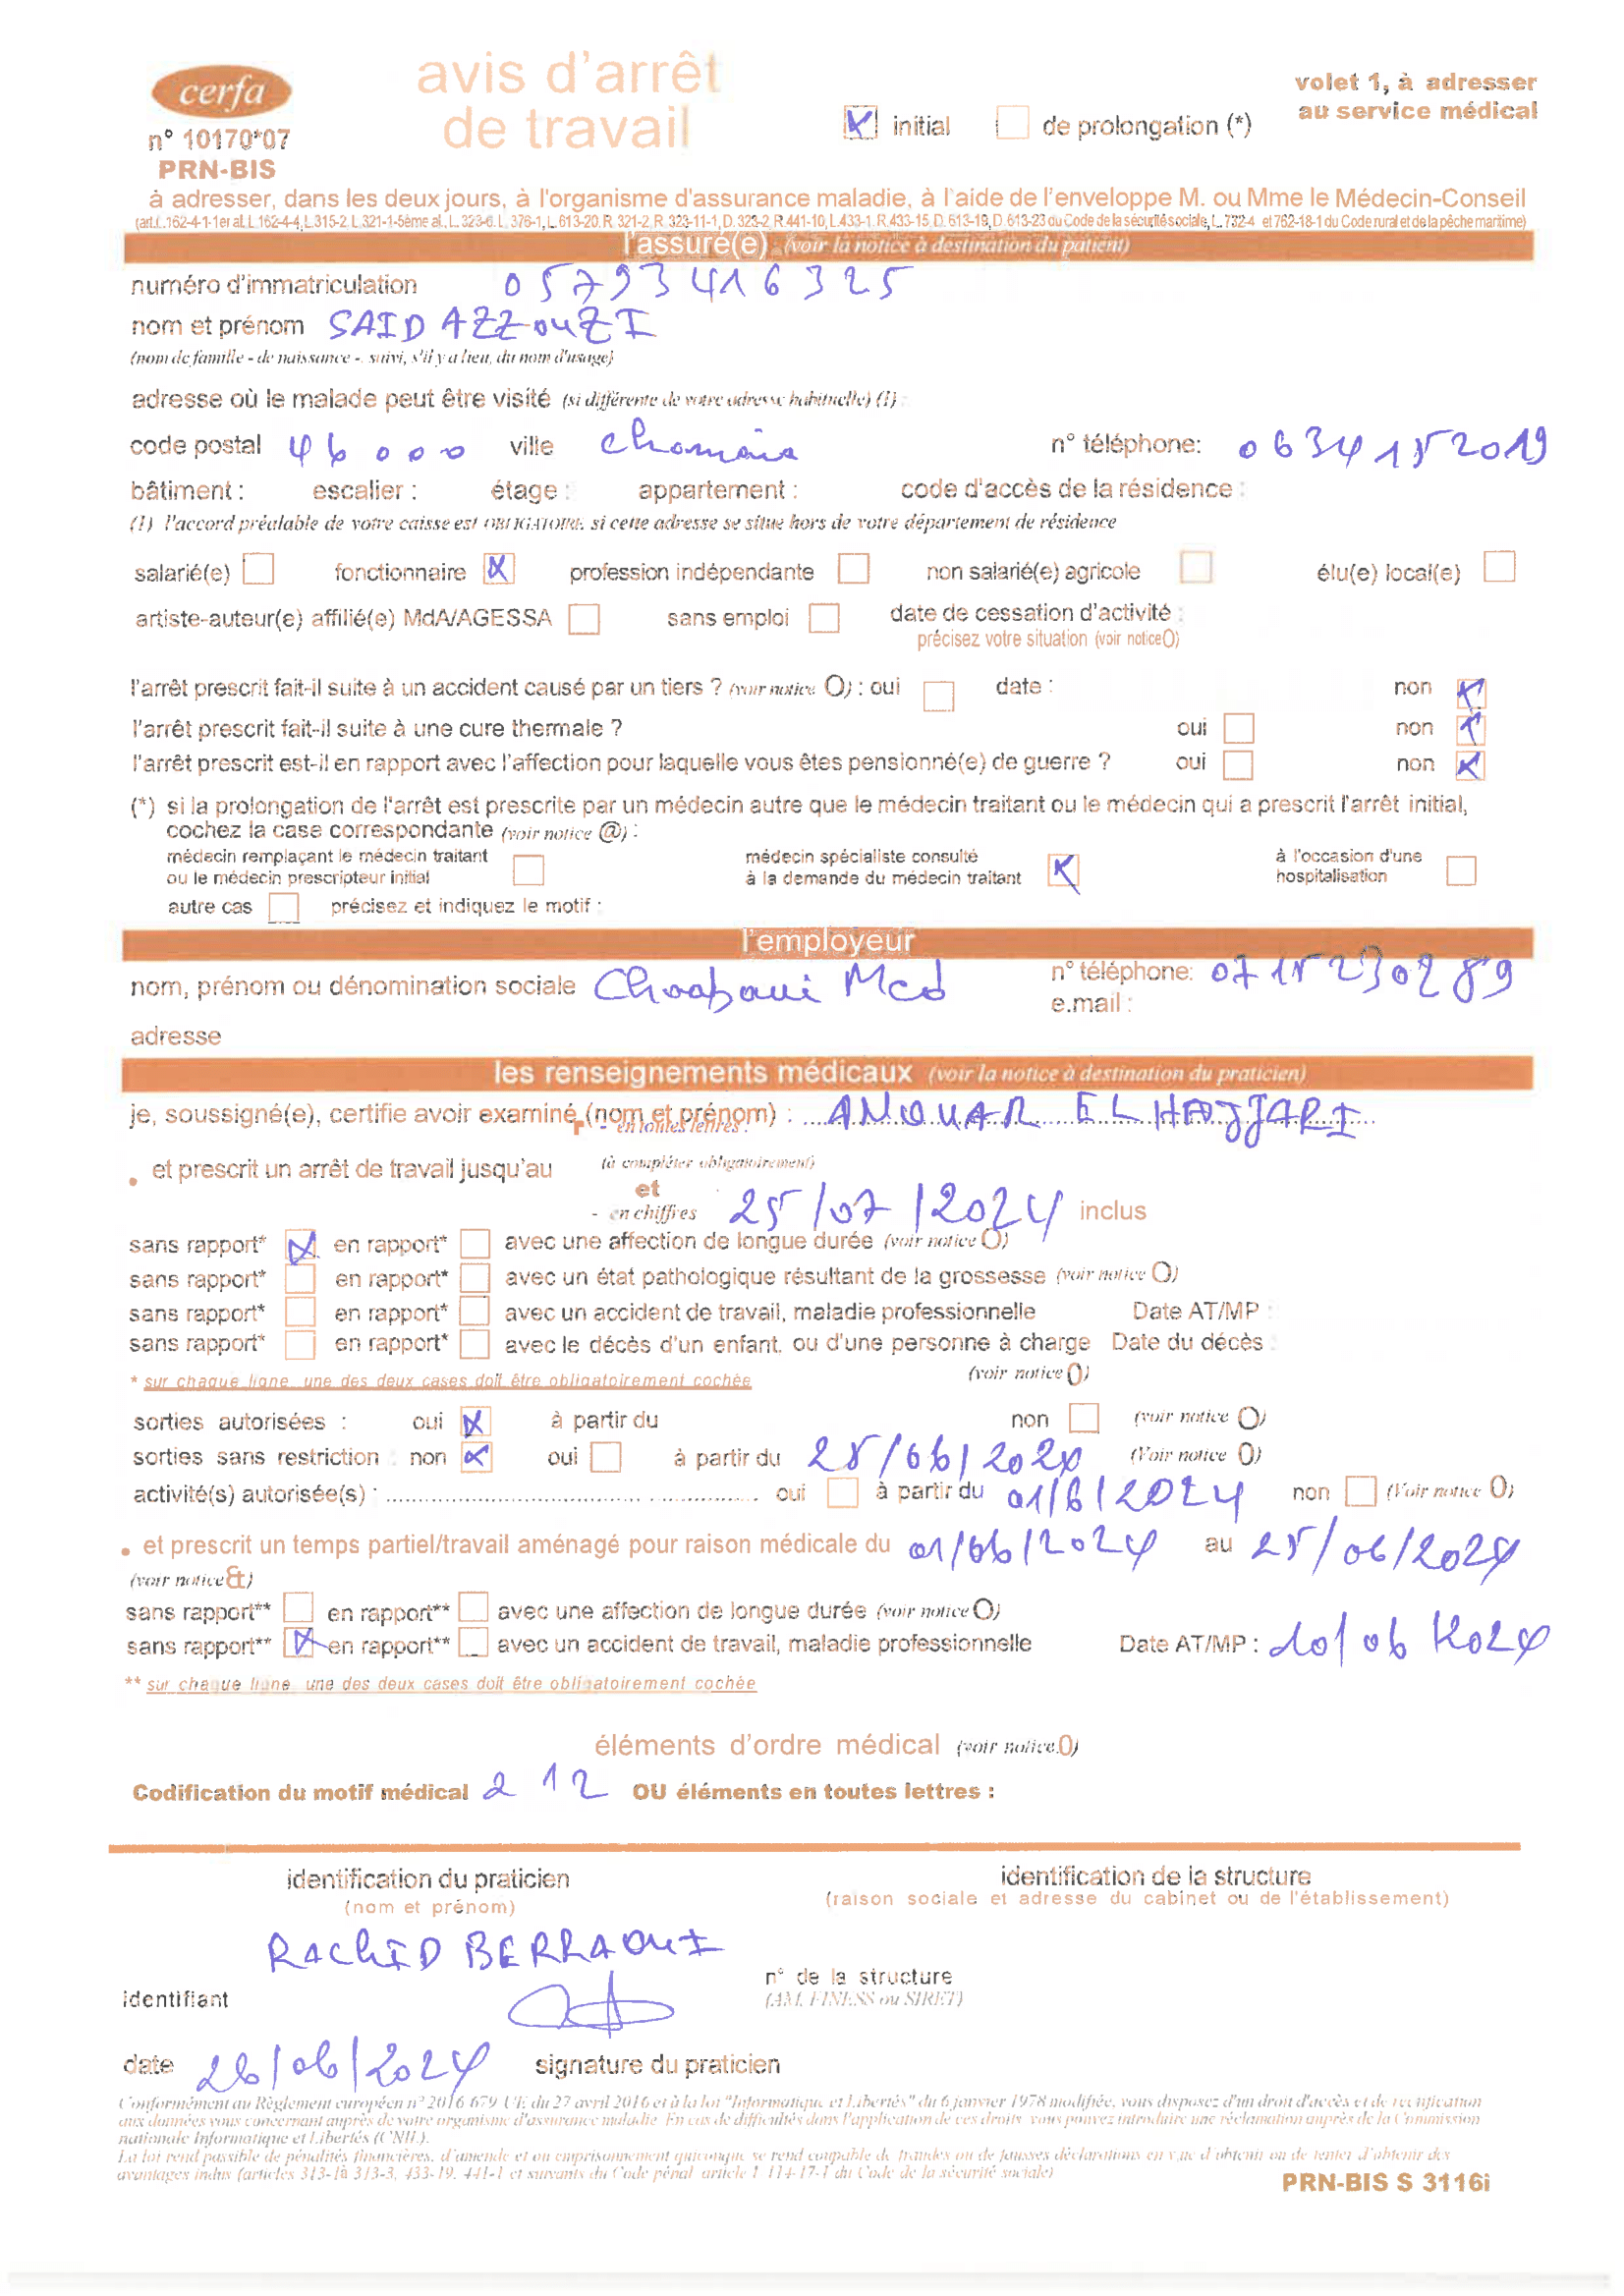 cerfa
n° 10170*07
PRN-BIS
avis d'arrêt
de travail
initial
de prolongation (*)
volet 1, à adresser
au service médical
à adresser, dans les deux jours, à l'organisme d'assurance maladie, à l'aide de l'enveloppe M. ou Mme le Médecin-Conseil
(art.L.162-4-1-1er al. L.162-4-4, L.315-2, L.321-1-5ème al., L. 323-6. L. 376-1, L. 613-20. R. 321-2, R. 323-11-1, D. 323-2, R.441-10, L.433-1. R.433-15. D. 613-19, D. 613-23 du Code de la sécurité sociale, L. 732-4 et 762-18-1 du Code rural et de la pêche maritime)
l'assuré(e) (voir la notice à destination du patient)
numéro d'immatriculation 05793416325
nom et prénom SAID AZZOUZI
(nom de famille - de naissance -, suivi, s'il y a lieu, du nom d'usage)
adresse où le malade peut être visité (si différente de votre adresse habituelle) (1) :
code postal 46000 ville n° téléphone: 0634152019
bâtiment : escalier : étage : appartement : code d'accès de la résidence :
(1) l'accord préalable de votre caisse est OBLIGATOIRE, si cette adresse se situe hors de votre département de résidence
salarié(e) fonctionnaire profession indépendante non salarié(e) agricole élu(e) local(e)
artiste-auteur(e) affilié(e) MdA/AGESSA sans emploi date de cessation d'activité :
précisez votre situation (voir notice O)
l'arrêt prescrit fait-il suite à un accident causé par un tiers ? (voir notice O) : oui date : non
l'arrêt prescrit fait-il suite à une cure thermale ? oui non
l'arrêt prescrit est-il en rapport avec l'affection pour laquelle vous êtes pensionné(e) de guerre ? oui non
(*) si la prolongation de l'arrêt est prescrite par un médecin autre que le médecin traitant ou le médecin qui a prescrit l'arrêt initial,
cochez la case correspondante (voir notice @) :
médecin remplaçant le médecin traitant
ou le médecin prescripteur initial
médecin spécialiste consulté
à la demande du médecin traitant
à l'occasion d'une
hospitalisation
autre cas précisez et indiquez le motif :
l'employeur
nom, prénom ou dénomination sociale Chaabaui Med n° téléphone: 0715230289
e.mail :
adresse
les renseignements médicaux (voir la notice à destination du praticien)
je, soussigné(e), certifie avoir examiné (nom et prénom) : ANOUAR ELHAJJARI
- en toutes lettres :
• et prescrit un arrêt de travail jusqu'au (à compléter obligatoirement)
et
- en chiffres 25/07/2024 inclus
sans rapport* en rapport* avec une affection de longue durée (voir notice O)
sans rapport* en rapport* avec un état pathologique résultant de la grossesse (voir notice O)
sans rapport* en rapport* avec un accident de travail, maladie professionnelle Date AT/MP :
sans rapport* en rapport* avec le décès d'un enfant, ou d'une personne à charge Date du décès :
(voir notice O)
* sur chaque ligne une des deux cases doit être obligatoirement cochée
sorties autorisées : oui à partir du non (voir notice O)
sorties sans restriction : non oui à partir du 25/06/2024 (Voir notice O)
activité(s) autorisée(s) : oui à partir du 01/6/2024 non (Voir notice O)
• et prescrit un temps partiel/travail aménagé pour raison médicale du 01/06/2024 au 25/06/2024
(voir notice &)
sans rapport** en rapport** avec une affection de longue durée (voir notice O)
sans rapport** en rapport** avec un accident de travail, maladie professionnelle Date AT/MP : 10/06/2024
** sur chaque ligne une des deux cases doit être obligatoirement cochée
éléments d'ordre médical (voir notice O)
Codification du motif médical 212 OU éléments en toutes lettres :
identification du praticien
(nom et prénom)
identification de la structure
(raison sociale et adresse du cabinet ou de l'établissement)
RACHID BERRAOUI
identifiant
n° de la structure
(AM, FINESS ou SIRET)
date 26/06/2024 signature du praticien
Conformément au Règlement européen n° 2016/679 UE du 27 avril 2016 et à la loi "Informatique et Libertés" du 6 janvier 1978 modifiée, vous disposez d'un droit d'accès et de rectification
aux données vous concernant auprès de votre organisme d'assurance maladie. En cas de difficultés dans l'application de ces droits, vous pouvez introduire une réclamation auprès de la Commission
nationale Informatique et Libertés (CNIL).
La loi rend passible de pénalités financières, d'amende et ou emprisonnement quiconque se rend coupable de fraudes ou de fausses déclarations en vue d'obtenir ou de tenter d'obtenir des
avantages indus (articles 313-1à 313-3, 433-19, 441-1 et suivants du Code pénal, article L 114-17-1 du Code de la sécurité sociale)
PRN-BIS S 3116i